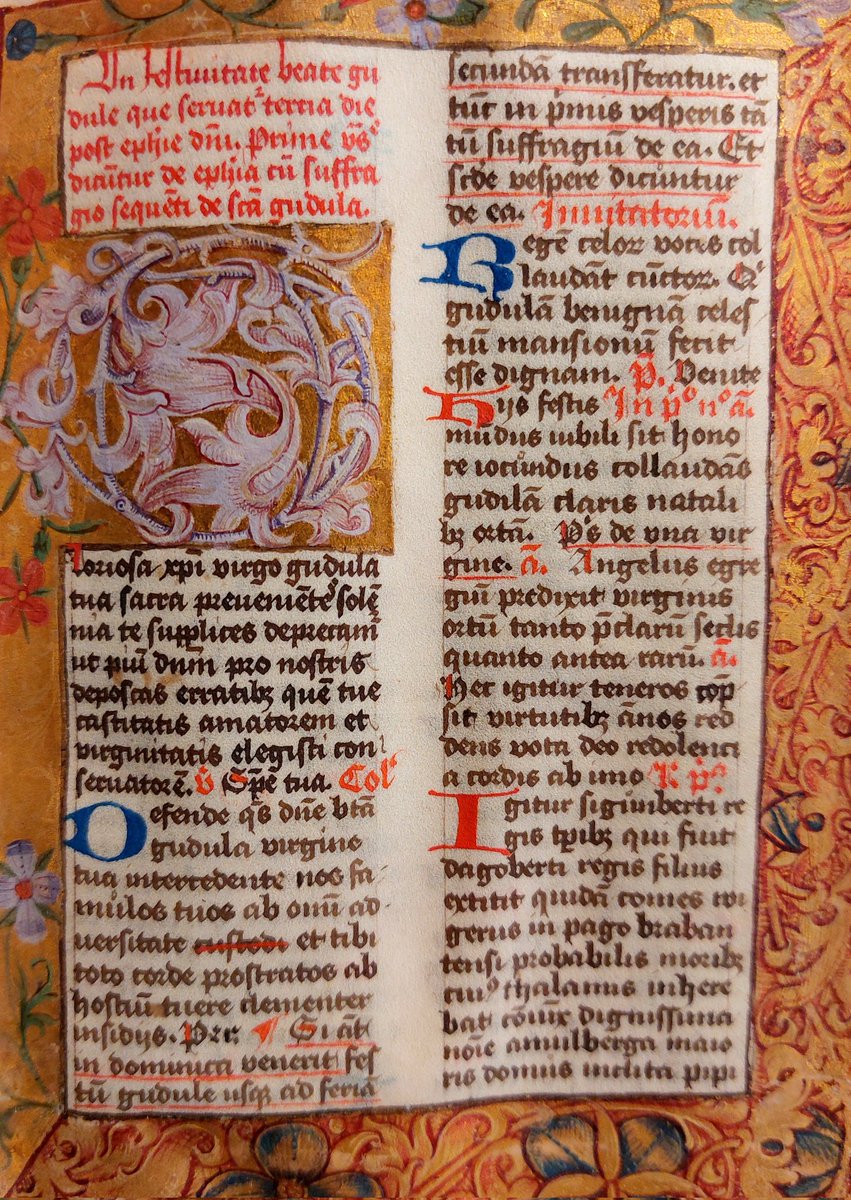 In festiuitate beate gu
dule que seruat᷑ tercia die
post epħie dn̄i. Prime vs̄
dicūtur de epħia cū suffra
gio sequēti de scā gudula.
loriosa xp̄i virgo gudula
tua sacra preueniētes solē
nia te supplices deprecam᷑
ut piū dn̄m pro nostris
deposcas erratibꝫ quē tue
castitatis amatorem et
virginitatis elegisti con
seruatorē. v̄ Spē tua. Col᷑
Defende qs̄ dn̄e btā
gudula virgine
tua intercedente nos fa
mulos tuos ab omī ad
uersitate custodi et tibi
toto corde prostratos ab
hostiū tuere clementer
insidijs. Per. ¶ Si āt
in dominica venerit fes
tū gudule usqꝫ ad feriā
secundā transferatur. et
tūc in p̄mis vesperis tā
tū suffragiū de ea. Et
scd̄e vespere dicūntur
de ea. Inuitatoriū.
Regē celoꝝ voces col
laudāt cūctoꝝ. Qͥ
gudulā benignā celes
tiū mansionū fecit
esse dignam. p̄. Venite
Hijs festis In pͦ nͦ ā.
mūdus iubili sit hono
re iocūndus collaudās
gudilā claris natali
bꝫ ortā. Ps̄ de vna vir
gine. ā. Angelus egre
giū predixit virginis
ortū tanto p̄clarū seclis
quanto antea rarū. ā.
Hec igitur teneros cōp̄
sit virtutibꝫ ānos red
dens vota deo redolenci
a cordis ab imo R. pͦ.
Igitur sigimberti re
gis tp̄ibꝫ qui fuit
dagoberti regis filius
extitit quidā comes wi
gerus in pago braban
tensi probabilis moribꝫ
cuiꝰ thalamus inhere
bat cōiunx dignissima
noīe amulberga maio
ris domus inclita pipi